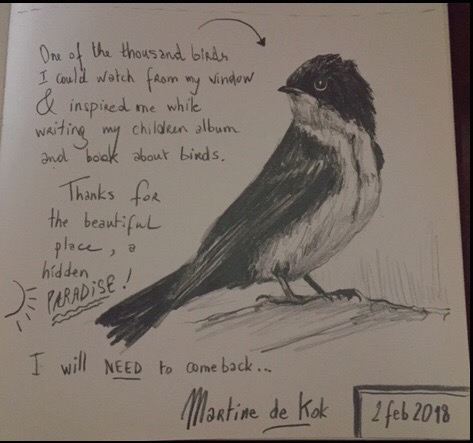 One of the thousand birds
I could watch from my window
& inspired me while
writing my children album
and book about birds.
Thanks for
the beautiful
place, a
hidden
PARADISE!
I will NEED to come back...
Martine de Kok
2 feb 2018